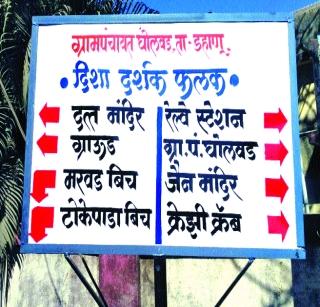 ग्रामपंचायत घोलवड, ता-डहाणू
•दिशा दर्शक फलक•
दत्त मंदिर
ग्राऊंड
मरवड बिच
टोकेपाडा बिच
रेल्वे स्टेशन
ग्रा.पं.घोलवड
जैन मंदिर
क्रेझी क्रॅब